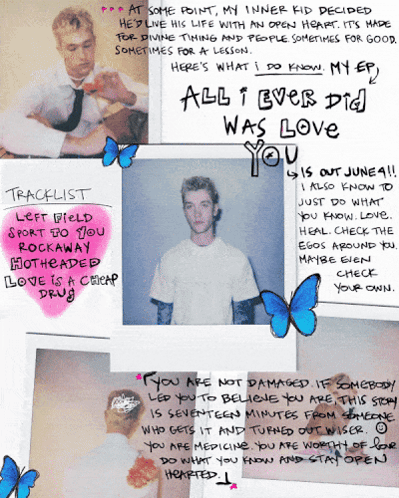 AT SOME POINT, MY INNER KID DECIDED
HE'D LIVE HIS LIFE WITH AN OPEN HEART. IT'S MADE
FOR DIVINE TIMING AND PEOPLE. SOMETIMES FOR GOOD.
SOMETIMES FOR A LESSON.
HERE'S WHAT i DO KNOW. MY EP,
ALL i EVER DiD
WAS LOVE
YOU
IS OUT JUNE 4!!
I ALSO KNOW TO
JUST DO WHAT
YOU KNOW. LOVE.
HEAL. CHECK THE
EGOS AROUND YOU.
MAYBE EVEN
CHECK
YOUR OWN.
TRACKLIST
LEFT FiELD
SPORT TO YOU
ROCKAWAY
HOTHEADED
LOVE iS A CHEAP
DRUg
YOU ARE NOT DAMAGED. IF SOMEBODY
LED YOU TO BELIEVE YOU ARE, THIS STORY
IS SEVENTEEN MINUTES FROM SOMEONE
WHO GETS IT AND TURNED OUT WISER.
YOU ARE MEDICINE. YOU ARE WORTHY OF love
DO WHAT YOU KNOW AND STAY OPEN
HEARTED.